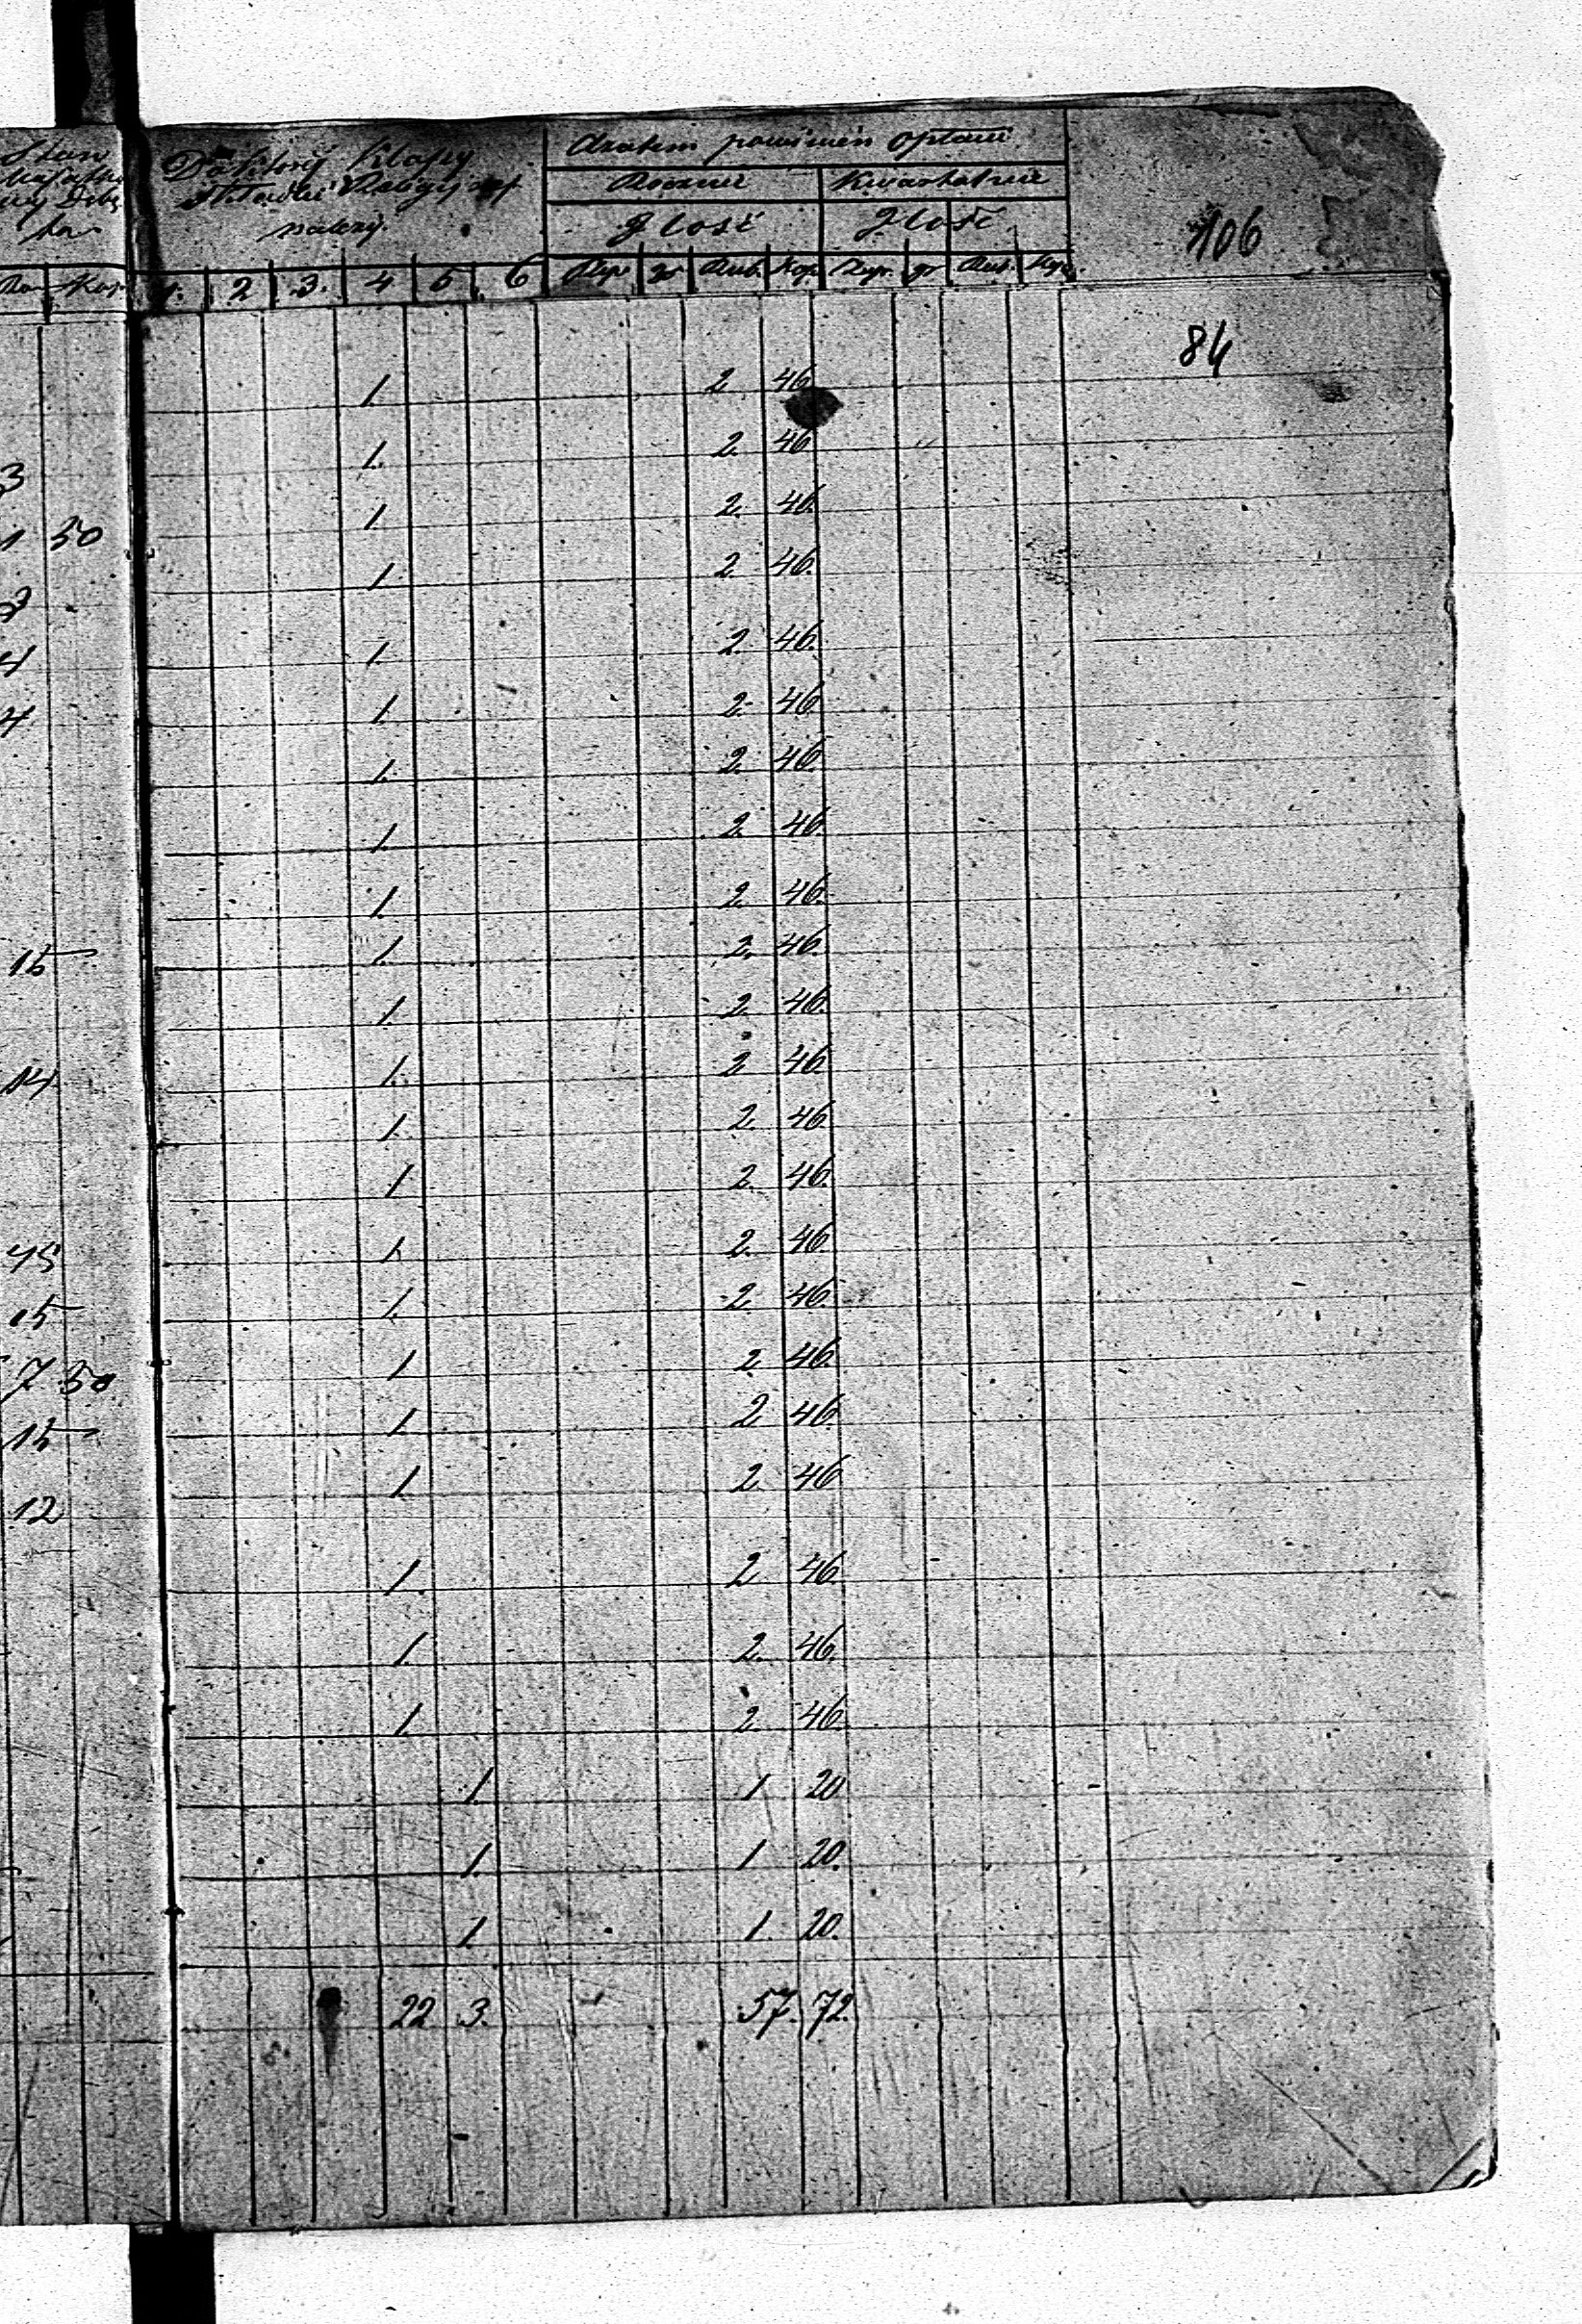 106
84
Stan
Do Których Klassy
należy
A zatem powinien opłacić
Rocznie Kwartalnie
Ilość Ilość
Kop. 1. 2 3. 4 5 6 gr Rub. Kop. gr Rub. Kop.
1. 2 46
3 1. 2. 46
1 50 1 2. 46.
1 2. 46.
4 1. 2. 46.
4 1. 2. 46.
1. 2. 46.
1. 2. 46.
1. 2. 46.
15 1. 2. 46.
1. 2. 46.
14 1. 2 46
1. 2. 46
1 2. 46.
45 1. 2. 46.
15 1. 2. 46.
7 50 1. 2 46.
15 1. 2 46.
12 1. 2 46
1. 2 46
1. 2. 46.
1. 2. 46.
1 1 20
1. 1 20.
1. 1. 20.
22 3. 57. 72.